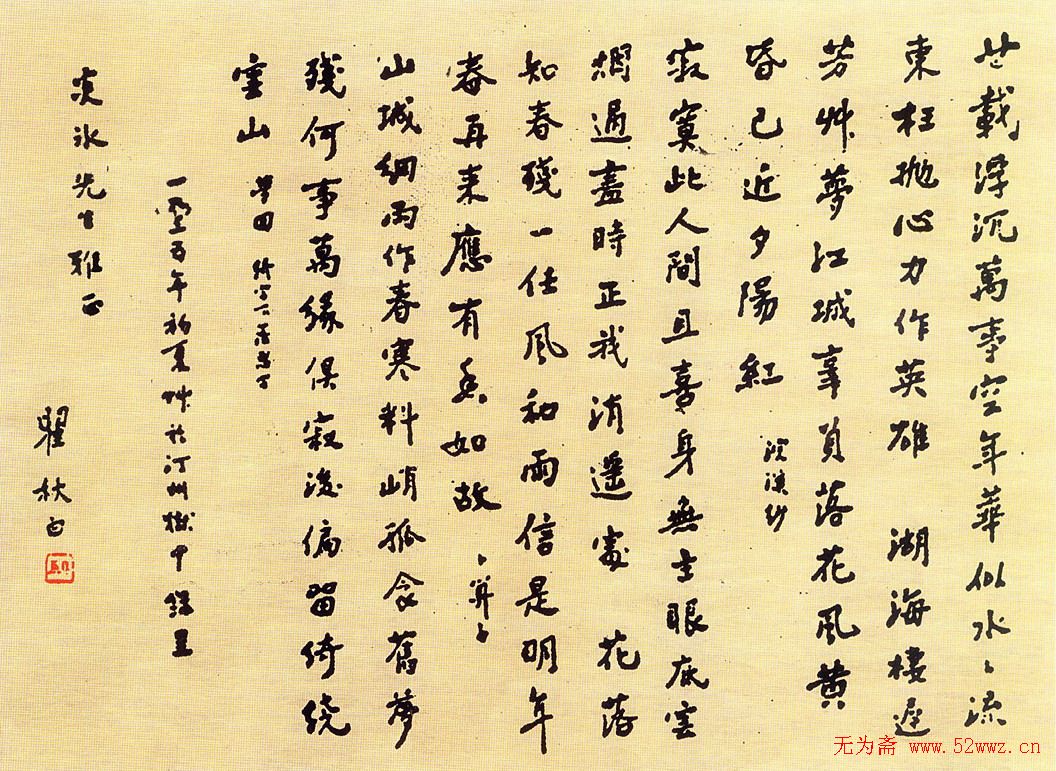 廿載浮沉萬事空年華似水々流
東枉抛心力作英雄 湖海棲遲
芳艸夢江城辜負落花風黄
昏已近夕陽紅 浣溪紗
寂寞此人間且喜身無主眼底雲
烟過盡時正我消遥處 花落
知春殘一任風和雨信是明年
春再来應有香如故 卜算子
山城細雨作春寒料峭孤衾舊夢
殘何事萬緣俱寂後偏留綺繞
雲山 夢回
一九三五年初夏艸於汀州獄中 錄呈
冰先生雅正
瞿秋白
无为斋 www.52wwz.cn